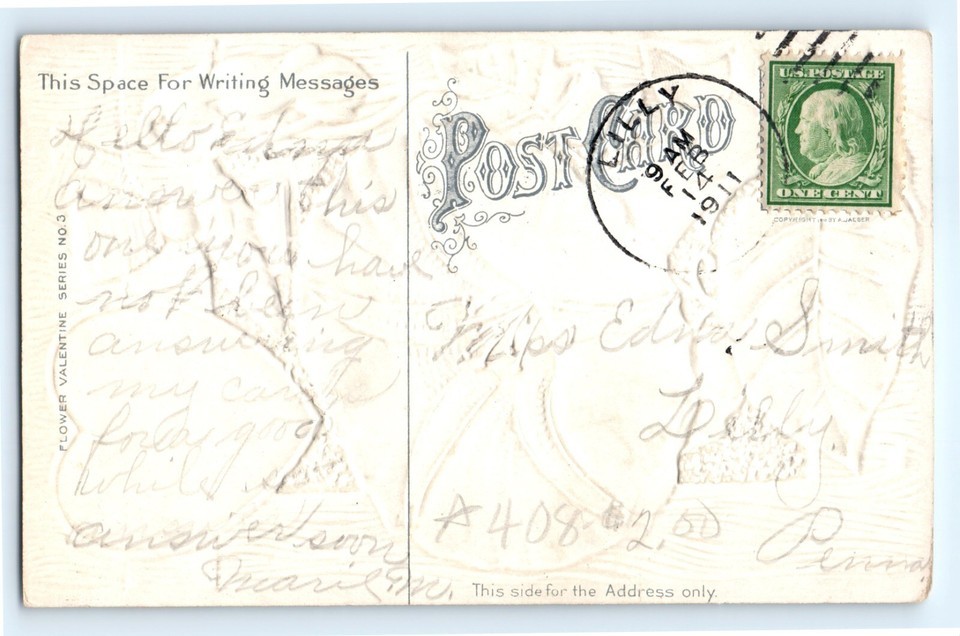 This Space For Writing Messages
Hello Edna
answer this
one you have
not been
answering
my cards
for a good
while so
answer soon
FLOWER VALENTINE SERIES NO. 3
POST CARD
LILLY
9 AM
FEB
14
1911
U.S. POSTAGE
ONE CENT
COPYRIGHT BY A. JAEGER
Miss Edna Smith
Lilly
Penna
A408 $2.00
This side for the Address only.